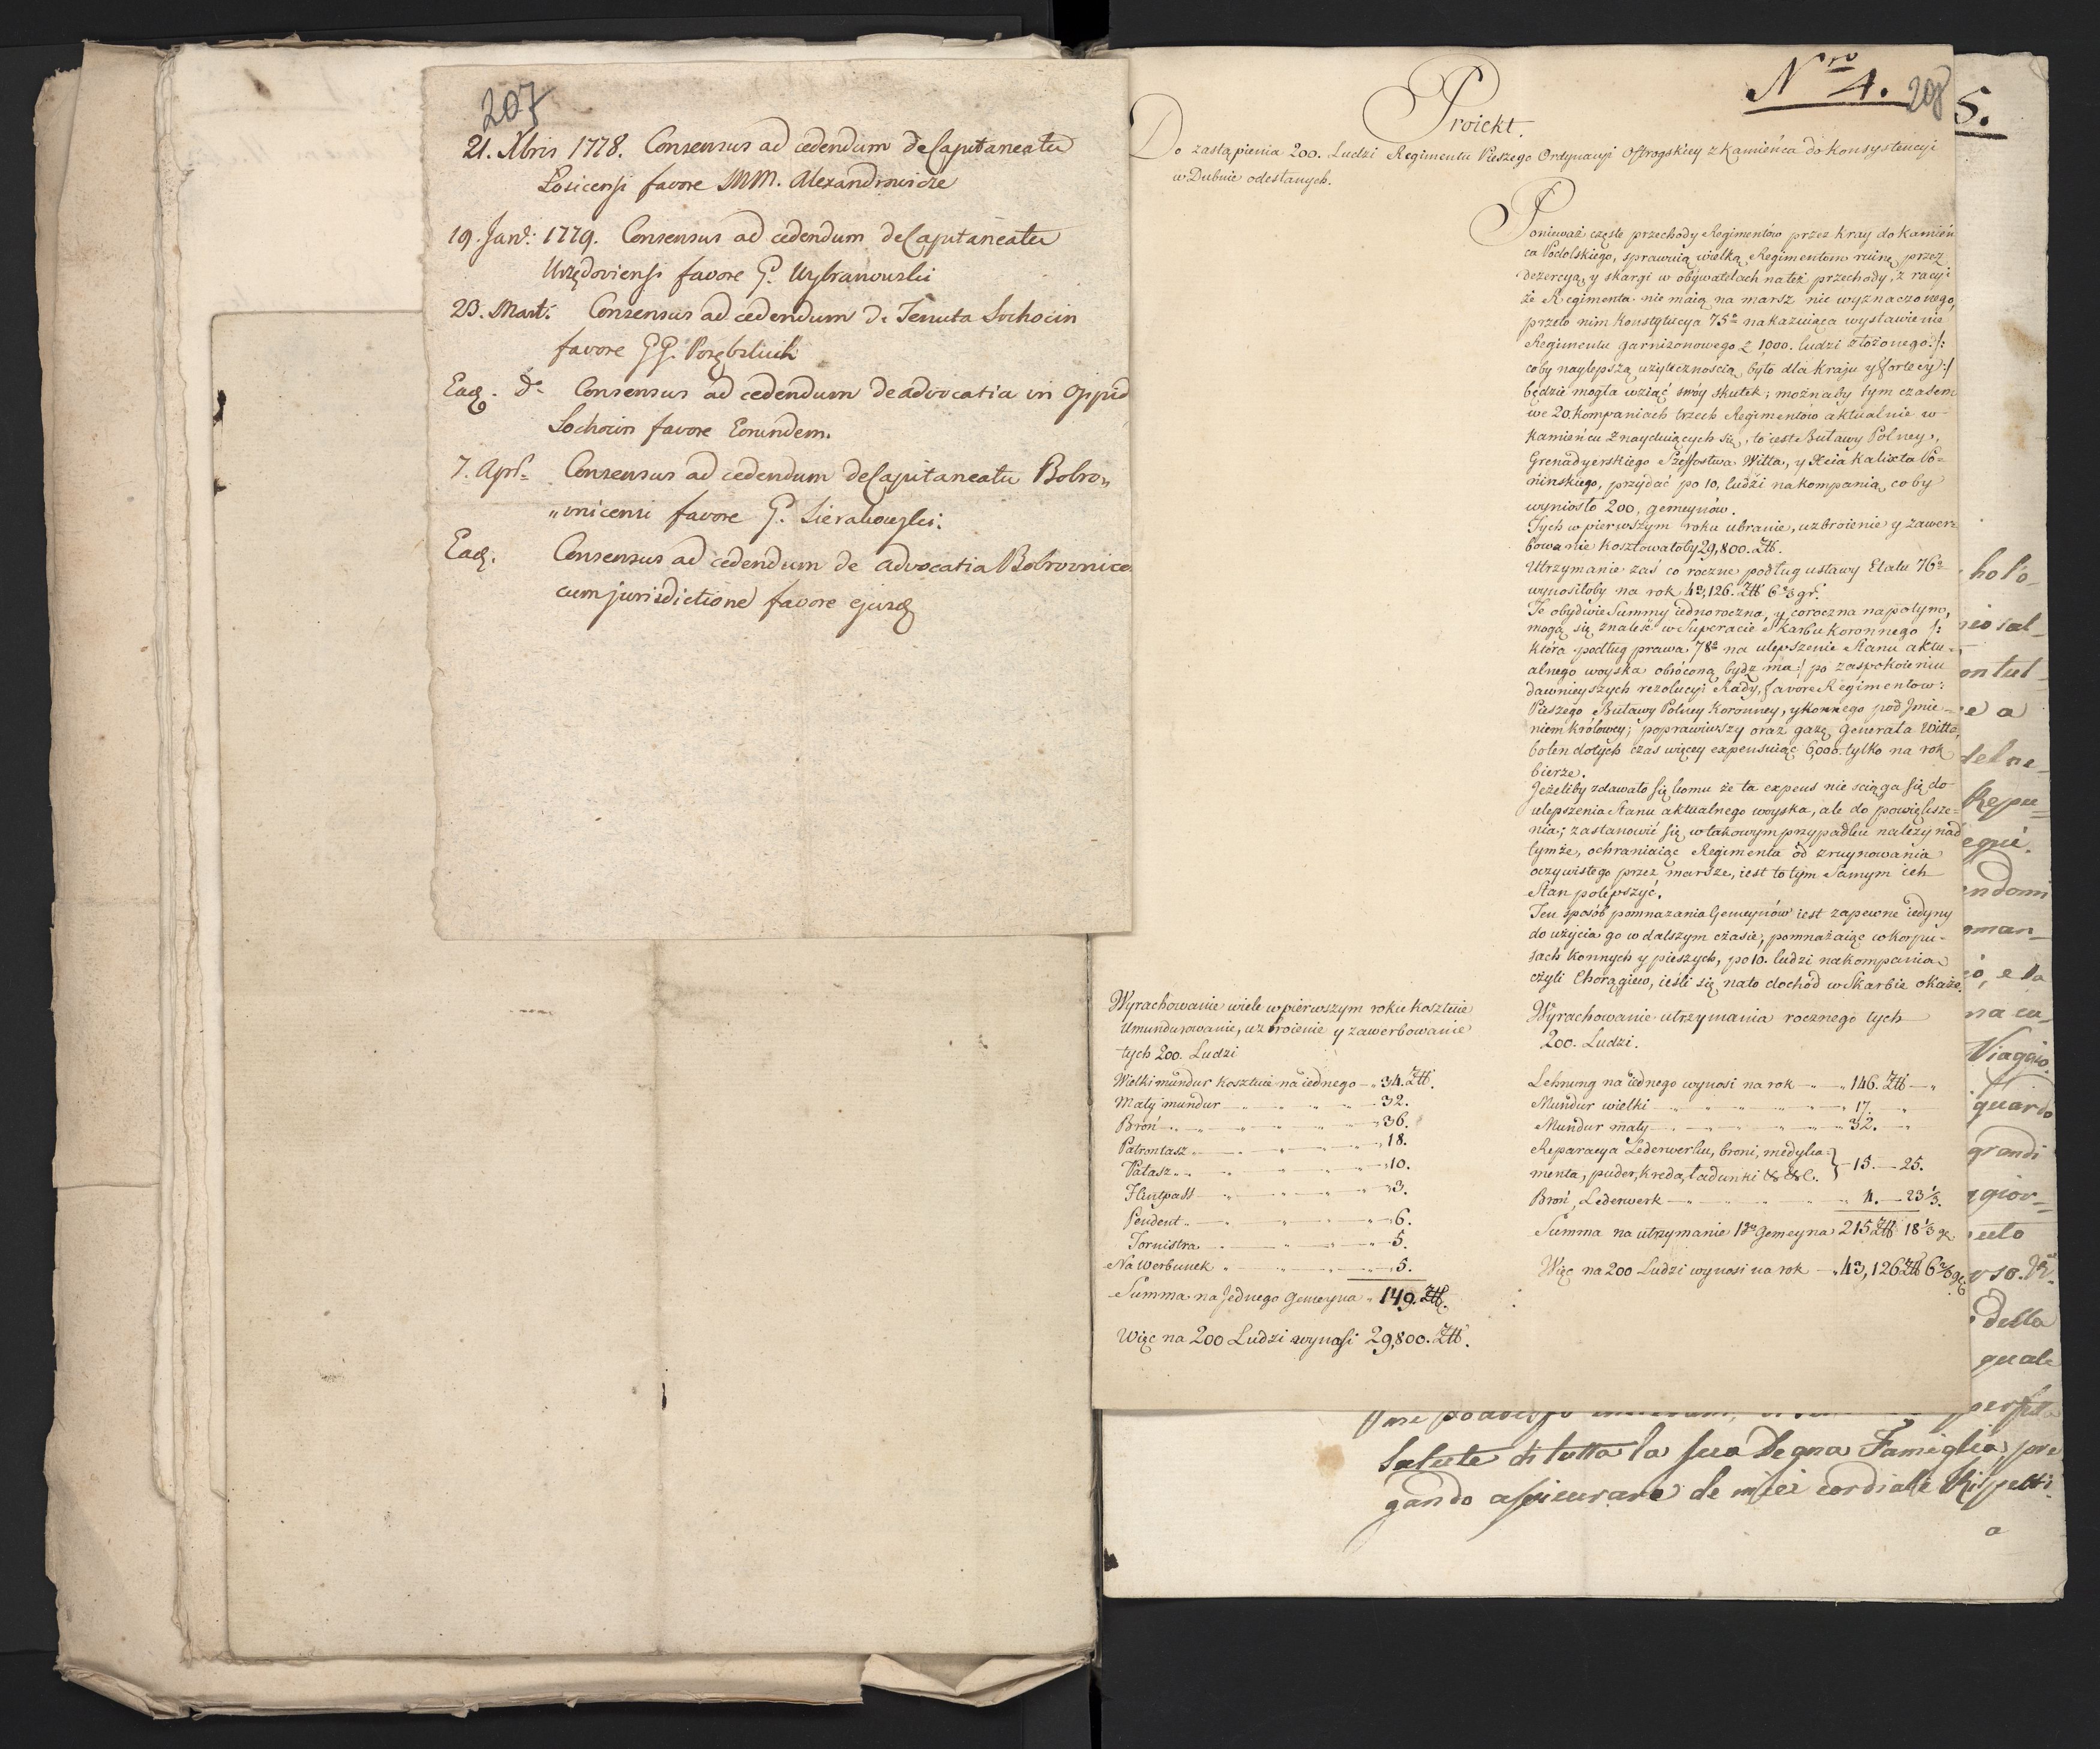 207
21. Xbris 1778. Consensus ad cedendum de Capitaneatu
Losicensi favore MM. Alexandrowicze
19. Janˢ: 1779. Consensus ad cedendum de Capitaneatu
Urzędoviensi favore G. Wybranowski
23. Martˢ: Consensus ad cedendum de Tenuta Sochocin
favore GG.
Eaḑ. dᵒ Consensus ad cedendum de advocatia in Oppid
Sochocin favore Eorundem.
7. Aprˢ Consensus ad cedendum de Capitaneatu Bobro„
„vnicensi favore G. Sierakowski.
Eaḑ. Consensus ad cedendum de advocatia Bobrovnice
cum jurisdictione favore ejusḑ
Nro 4. 208
Proiekt.
Do zastąpienia 200. Ludzi Regimentu Pieszego Ordynacyi Ostrogskiey z Kamieńca do Konsystencyi
w Dubnie odesłanych.
Ponieważ częste przechody Regimentów przez kray do Kamień
ca Podolskiego, sprawuią wielką Regimentom ruinę przez
dezercyą, y skargi w obywatelach na też przechody, z racyi
że Regimenta nie maią na marsz nic wyznaczonego,
przeto nim Konstytucya 75ᵃ nakazuiąca wystawienie
Regimentu garnizonowego z 1,000. ludzi złożonego /:
coby naylepszą użytecznością było dla kraju y fortecy :/
będzie mogła wziąć swóy skutek; możnaby tym czasem
we 20. kompaniach trzech Regimentów aktualnie w
Kamieńcu znayduiących się, to iest Buławy Polney,
Grenadyerskiego Szefostwa Witta, y Xcia Kalixta Po=
nińskiego, przydać po 10, ludzi na kompanią, co by
wyniosło 200, gemeynów.
Tych w pierwszym roku ubranie, uzbroienie y zawer=
bowanie kosztowałoby 29,800. Złł.
Utrzymanie zaś co roczne podług ustawy Etatu 76ᵒ
wynosiłoby na rok 43,126. Złł 6⅔ gr.
Te obydwie Summy iednoroczna, y coroczna na potym,
mogą się znaleść w Superacie Skarbu koronnego /:
która podług prawa 78ᵒ na ulepszenie Stanu aktu=
alnego woyska obrócona bydz ma :/ po zaspokoieniu
dawnieyszych rezolucyi Rady, favore Regimentow:
Pieszego Buławy Polney Koronney, y konnego pod Jmie=
niem Królowey; poprawiwszy oraz gażę Generała Witta,
bo ten dotych czas więcey expensuiąc 6,000. tylko na rok
bierze.
Jeżeliby zdawało się komu że ta expens nie ściąga się do
ulepszenia Stanu aktualnego woyska, ale do powiększe=
nia; zastanowić się w takowym przypadku należy nad
tymże, ochraniaiąc Regimenta od zruynowania
oczywistego przez marsze, iest to tym Samym ich
Stan polepszyć.
Ten sposób pomnażania Gemeynów iest zapewne iedyny
do użycia go w dalszym czasie, pomnażaiąc w korpu=
sach konnych y pieszych, po 10. ludzi na kompanią
czyli Chorągiew, ieśli się na to dochód w Skarbie okaże.
Wyrachowanie wiele w pierwszym roku kosztuie
Umundurowanie, uzbroienie y zawerbowanie
tych 200. Ludzi
Wielki mundur kosztuie na iednego — 34. Złł.
Mały mundur — 32.
Broń — 36.
Patrontasz — 18.
Pałasz — 10.
Flintpass — 3.
Pendent — 6.
Tornistra — 5.
Na Werbunek — 5.
Summa na Jednego Gemeyna 149. Złł.
Więc na 200 Ludzi wynosi 29,800. Złł.
Wyrachowanie utrzymania rocznego tych
200. Ludzi.
Lehnung na iednego wynosi na rok — 146. Złł —
Mundur wielki — 17. "
Mundur mały — 32. "
Reparacya Lederwerku, broni, medyka=
menta, puder, kreda, ładunki &&c. } — 15. — 25.
Broń, Lederwerk — 4. — 23⅓.
Summa na utrzymanie 1go Gemeyna 215 Złł 18⅓ gr.
Więc na 200 Ludzi wynosi na rok 43,126 Złł 6⅔ gr.
5.
Viaggio.
guardo
grandi
della
quale
Salute di tutta la sua Degna Famiglia, pre
gando assicurare de miei cordiali Rispetti.
a